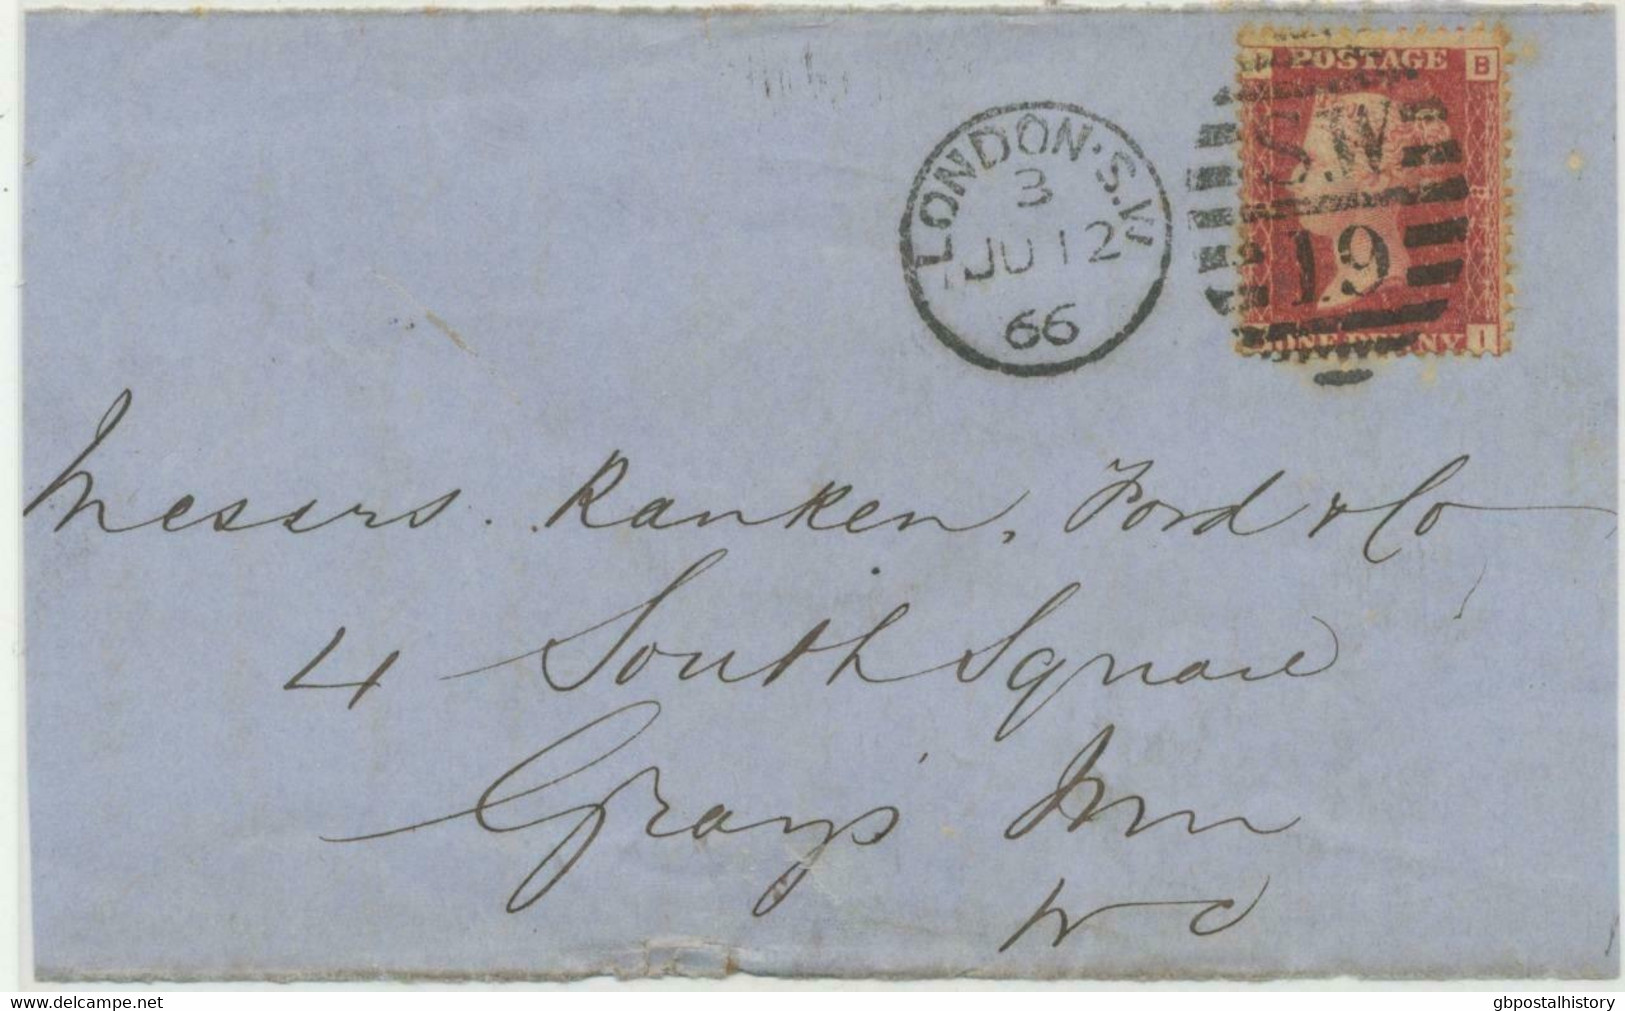 POSTAGE
B
S.W
19
ONE PENNY
I
LONDON·S.W
3
JU 12
66
Messrs. Ranken, Ford & Co
4 South Square
Gray's Inn
WC
www.delcampe.net
gbpostalhistory